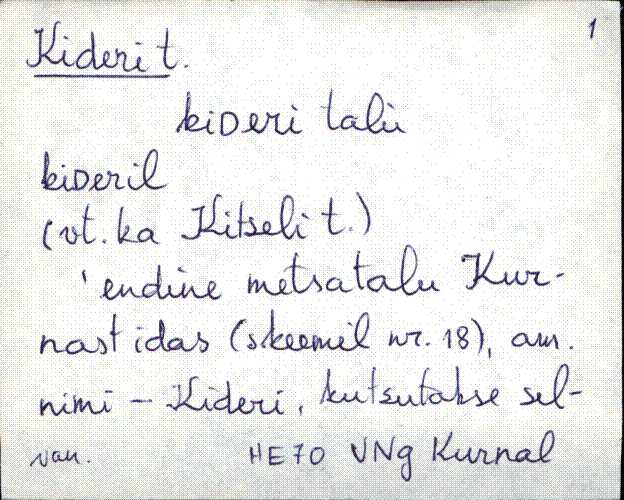 1
Kideri t.
kiDeri talù
kiDeril
(vt. ka Kitseli t.)
'endine metsatalu Kur-
nast idas (skeemil nr. 18), am.
nimi - Kideri, kutsutakse sel-
van. HE70 VNg Kurnal